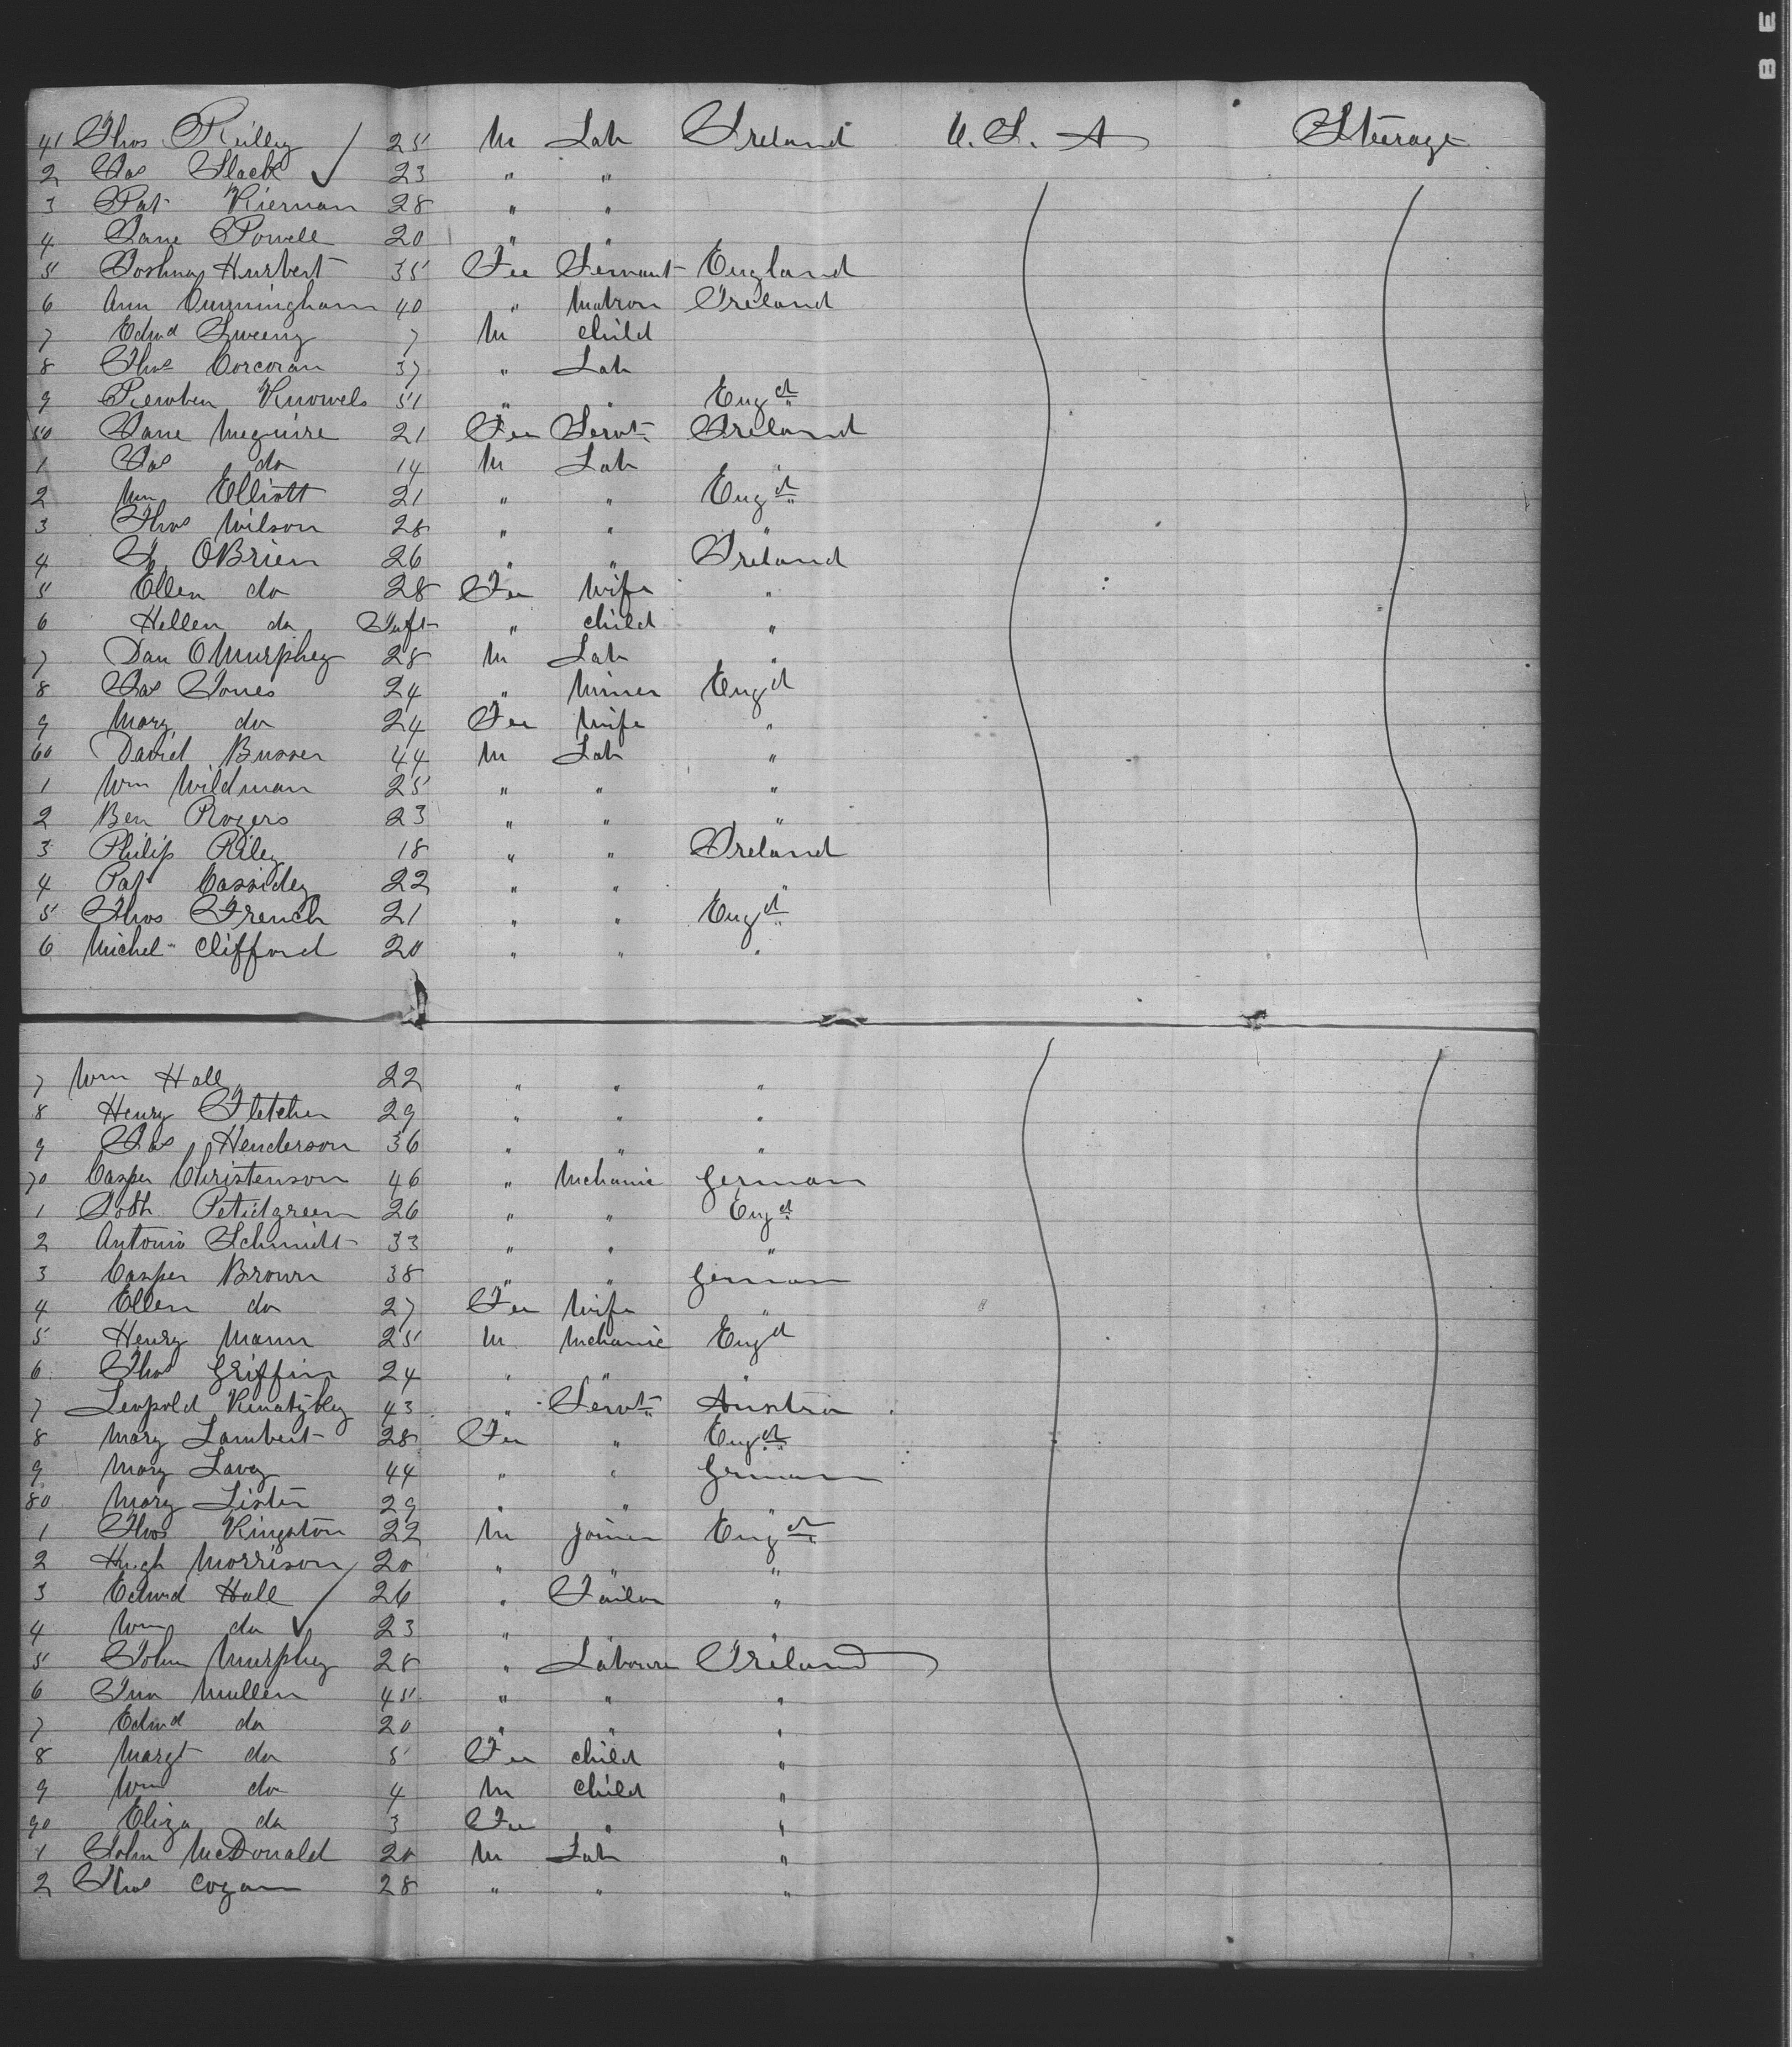 41 Thos Reilly 25 M Lab Ireland U. S. A Steerage
2 Jas Slack 23 " "
3 Pat Kiernan 28 " "
4 Jane Powell 20 " "
5 Joshua Hurbert 35 Fe Servant England
6 Ann Cunningham 40 " Matron Ireland
7 Edwd Sweeny 7 M Child
8 Thos Corcoran 37 " Lab
9 Rewben Knowels 51 " " Engd "
50 Jane Meguire 21 Fe Servt Ireland
1 Jas do 14 M Lab "
2 Wm Elliott 21 " " Engd "
3 Thos Wilson 28 " " "
4 OBrien 26 " " Ireland
5 Ellen do 28 Fe Wife "
6 Hellen do Inft " Child "
7 Dan OMurphey 28 M Lab "
8 Jas Jones 24 " Miner Engd
9 Mary do 24 Fe Wife "
60 David Busser 44 M Lab "
1 Wm Wildman 25 " " "
2 Ben Rogers 23 " " "
3 Philip Riley 18 " " Ireland
4 Pat Cassidey 22 " " "
5 Thos French 21 " " Engd "
6 Michel Clifford 20 " " "
7 Wm Hall 22 " " "
8 Henry Fletcher 29 " " "
9 Jas Henderson 36 " " "
70 Casper Christenson 46 " Mchanic German
1 Petidgreen 26 " " Engd
2 Antonio Schmidt 33 " " "
3 Casper Brown 38 " " German
4 Ellen do 27 Fe Wife "
5 Henry Mann 25 M Mchanic Engd
6 Thos Griffin 24 " " "
7 Leopold 43 " Servt " Austria
8 Mary Lambert 28 Fe " Engd "
9 Mary Lavey 44 " " German
80 Mary Lister 29 " " "
1 Thos Kingston 22 M Joiner Engd "
2 Hugh Morrison 20 " " "
3 Edwd Hall 26 " Tailor "
4 Wm do 23 " "
5 John Murphey 28 " Laboure Ireland
6 Jno Mullen 45 " " "
7 Edwd do 20 " " "
8 Margt do 5 Fe child "
9 Wm do 4 M Child "
90 Eliza do 3 Fe " "
1 John McDonald 20 M Lab "
2 Thos Cogan 28 " " "